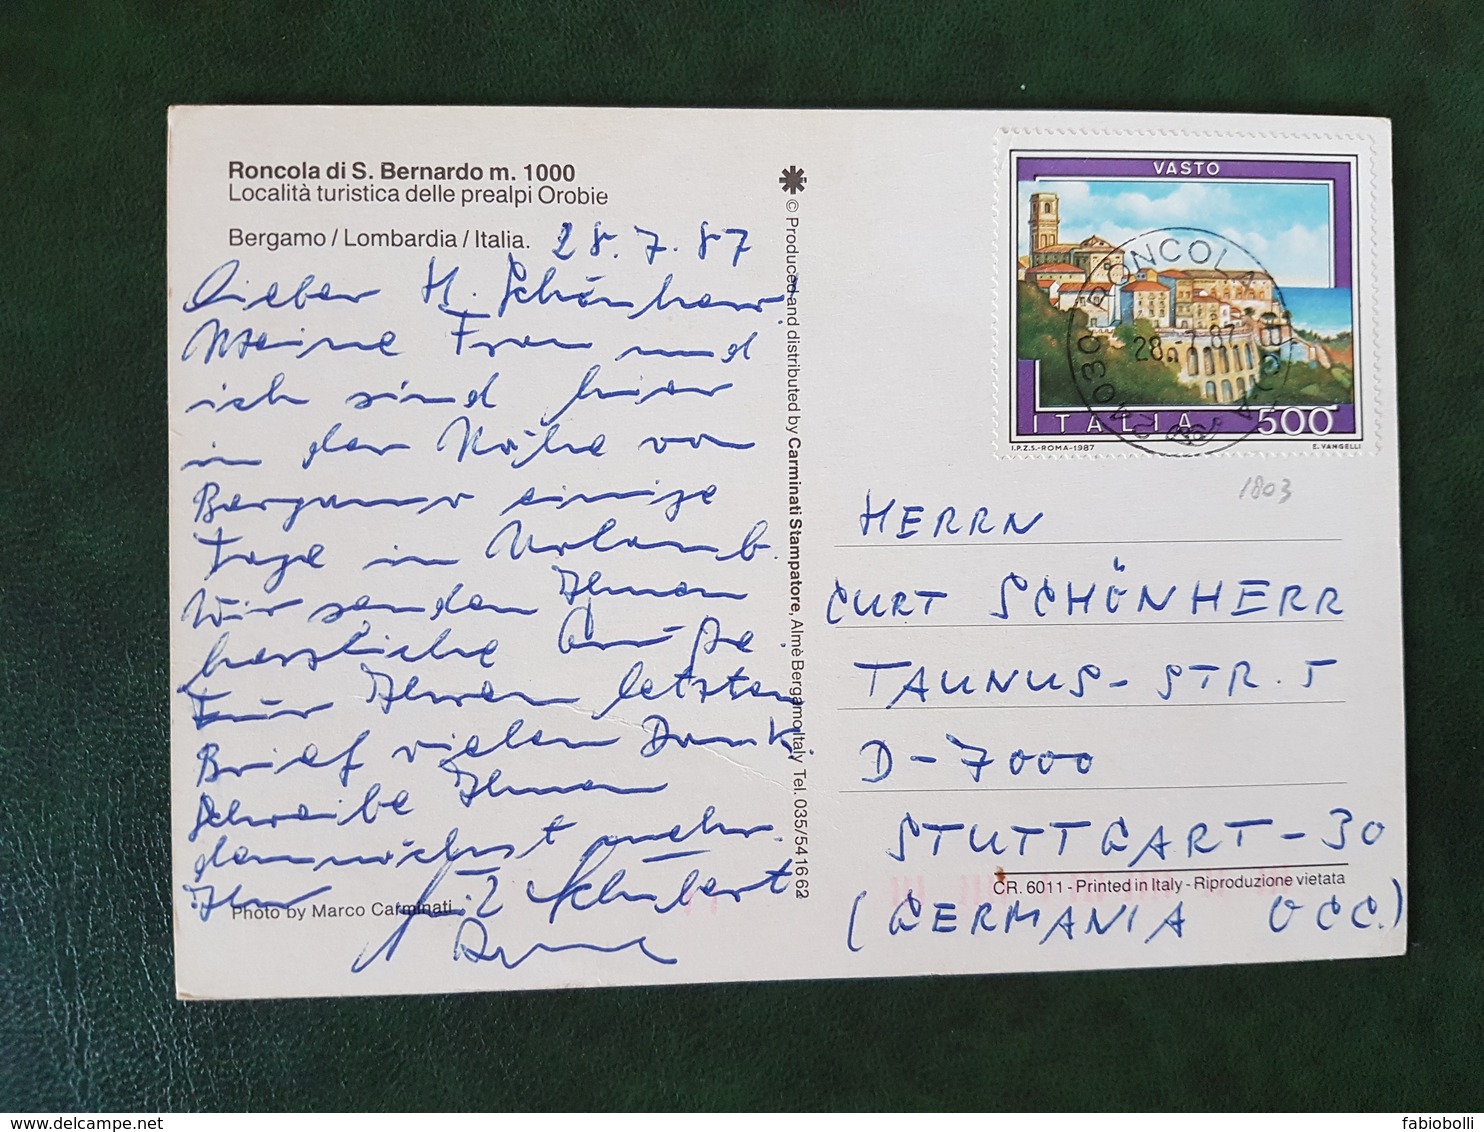 Roncola di S. Bernardo m. 1000
Località turistica delle prealpi Orobie
Bergamo / Lombardia / Italia.
28.7.87
Lieber H. Schönherr,
Meine Frau und
ich sind hier
in der Nähe von
Bergamo einige
Tage in Urlaub.
Wir senden Ihnen
herzliche Grüße.
Für Ihren letzten
Brief vielen Dank.
Schreibe Ihnen
demnächst mehr.
Ihr Schubert
Photo by Marco Carminati
© Produced and distributed by Carminati Stampatore, Almè Bergamo Italy Tel. 035/541662
VASTO
ITALIA 500
I.P.Z.S.-ROMA-1987 E. VANGELLI
RONCOLA
28.7.87
1803
HERRN
CURT SCHÖNHERR
TAUNUS-STR. 5
D-7000
STUTTGART-30
CR. 6011 - Printed in Italy - Riproduzione vietata
(GERMANIA OCC.)
fabiobolli